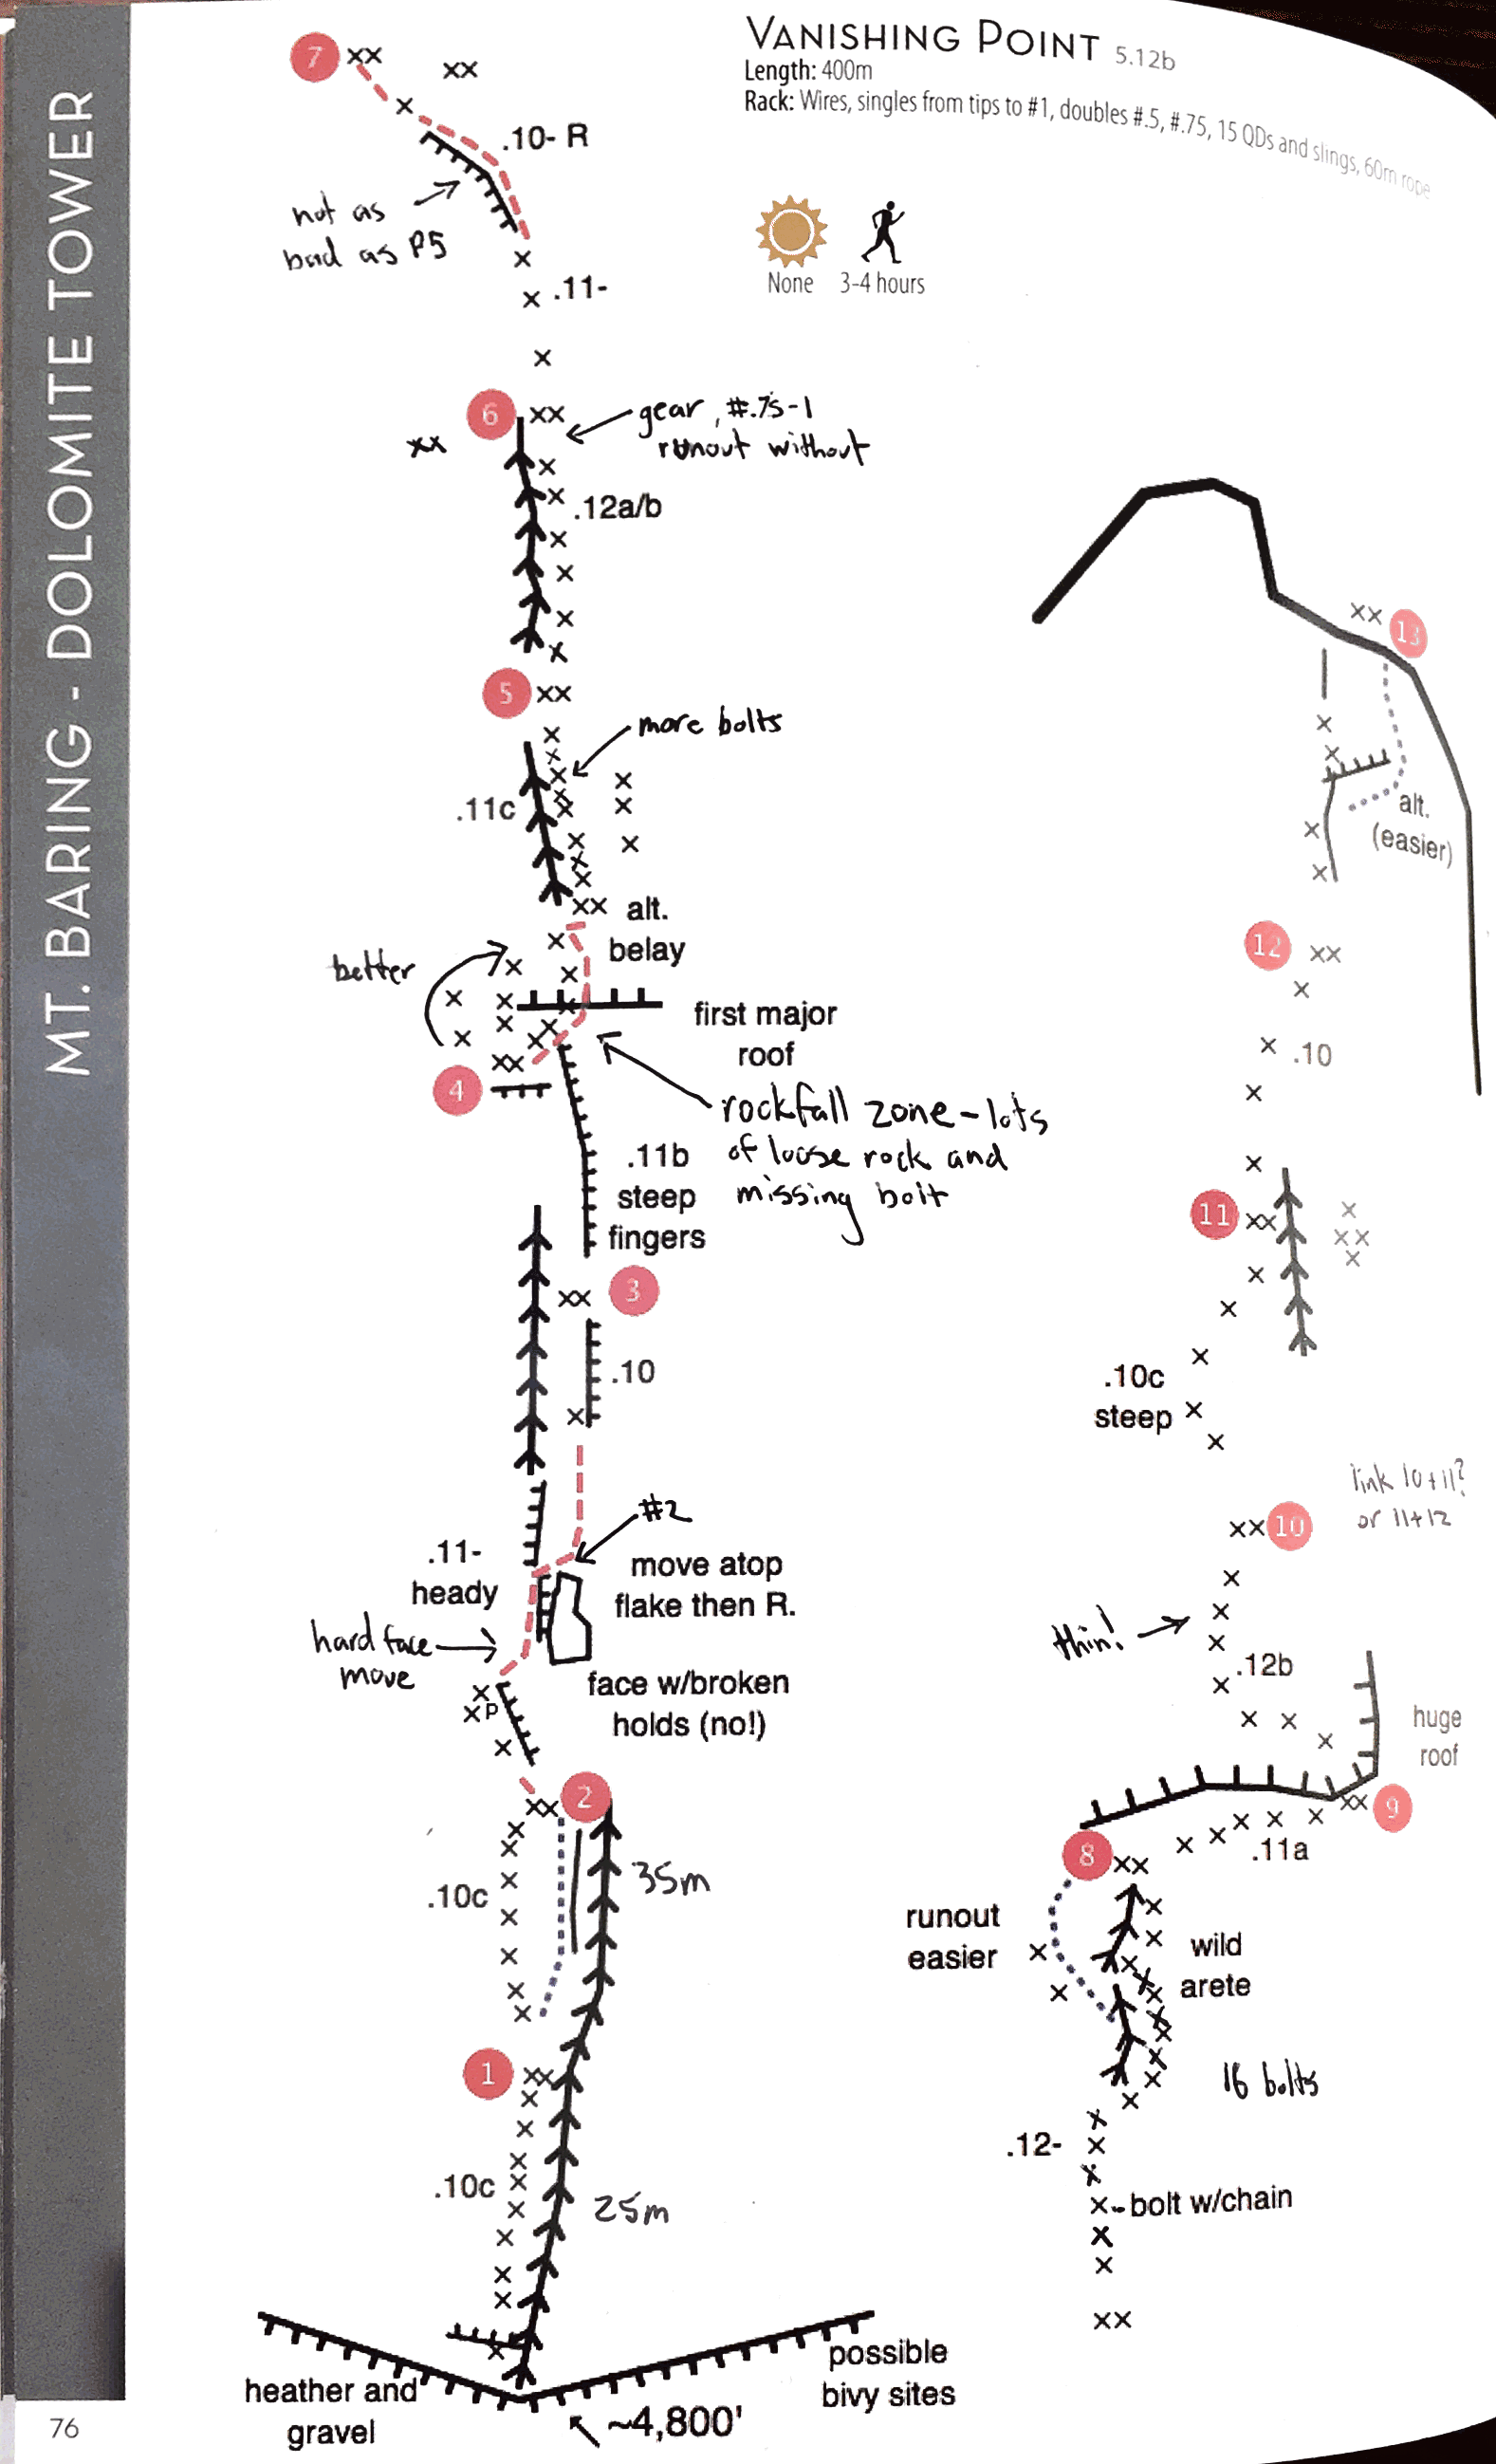 MT. BARING - DOLOMITE TOWER
VANISHING POINT 5.12b
Length: 400m
Rack: Wires, singles from tips to #1, doubles #.5, #.75, 15 QDs and slings, 60m rope
None
3-4 hours
7
XX
XX
X
.10- R
not as
bad as P5
X
X
.11-
X
6
XX
XX
gear, #.75-1
runout without
X
X
.12a/b
X
X
X
X
5
XX
X
more bolts
.11c
XX
alt.
belay
better
first major
roof
XX
4
rockfall zone - lots
of loose rock and
missing bolt
.11b
steep
fingers
XX
3
.10
X
#2
.11-
heady
move atop
flake then R.
hard face
move
face w/broken
holds (no!)
X
XP
X
XX
2
.10c
35m
1
XX
.10c
25m
heather and
gravel
~4,800'
possible
bivy sites
76
XX
13
X
X
alt.
(easier)
X
X
12
XX
X
X
.10
X
X
11
XX
X
XX
X
X
X
X
.10c
steep
X
X
link 10+11?
or 11+12
XX
10
X
X
thin!
X
.12b
X
X X X
huge
roof
XX
9
X X X X X
.11a
8
XX
runout
easier
X
X
wild
arete
16 bolts
.12-
X
X
X
X-bolt w/chain
X
X
XX